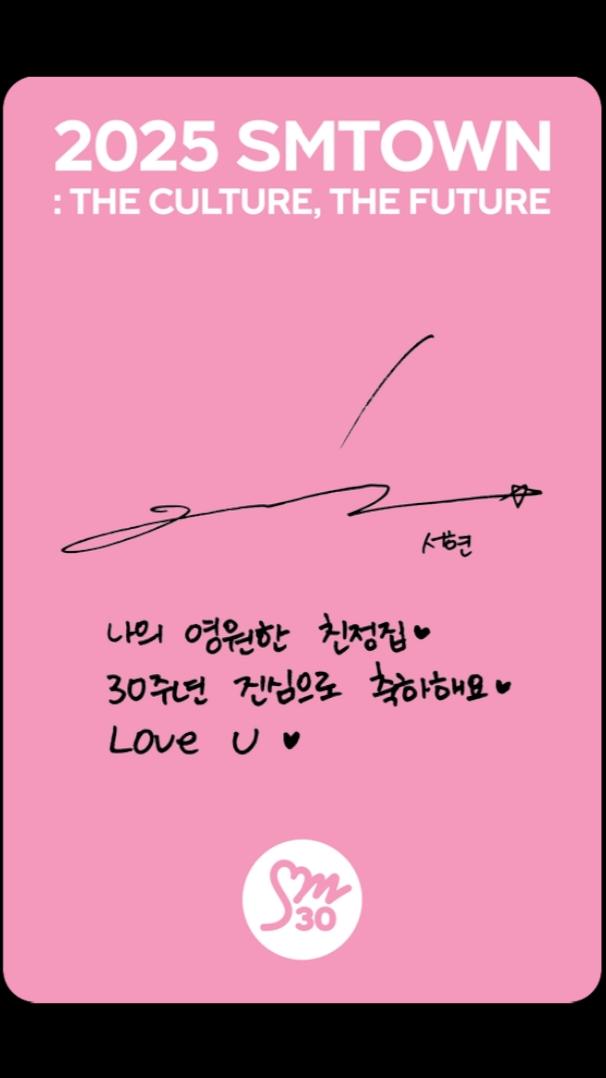 2025 SMTOWN
: THE CULTURE, THE FUTURE
서현
나의 영원한 친정집♥
30주년 진심으로 축하해요♥
Love U ♥
Sm
30